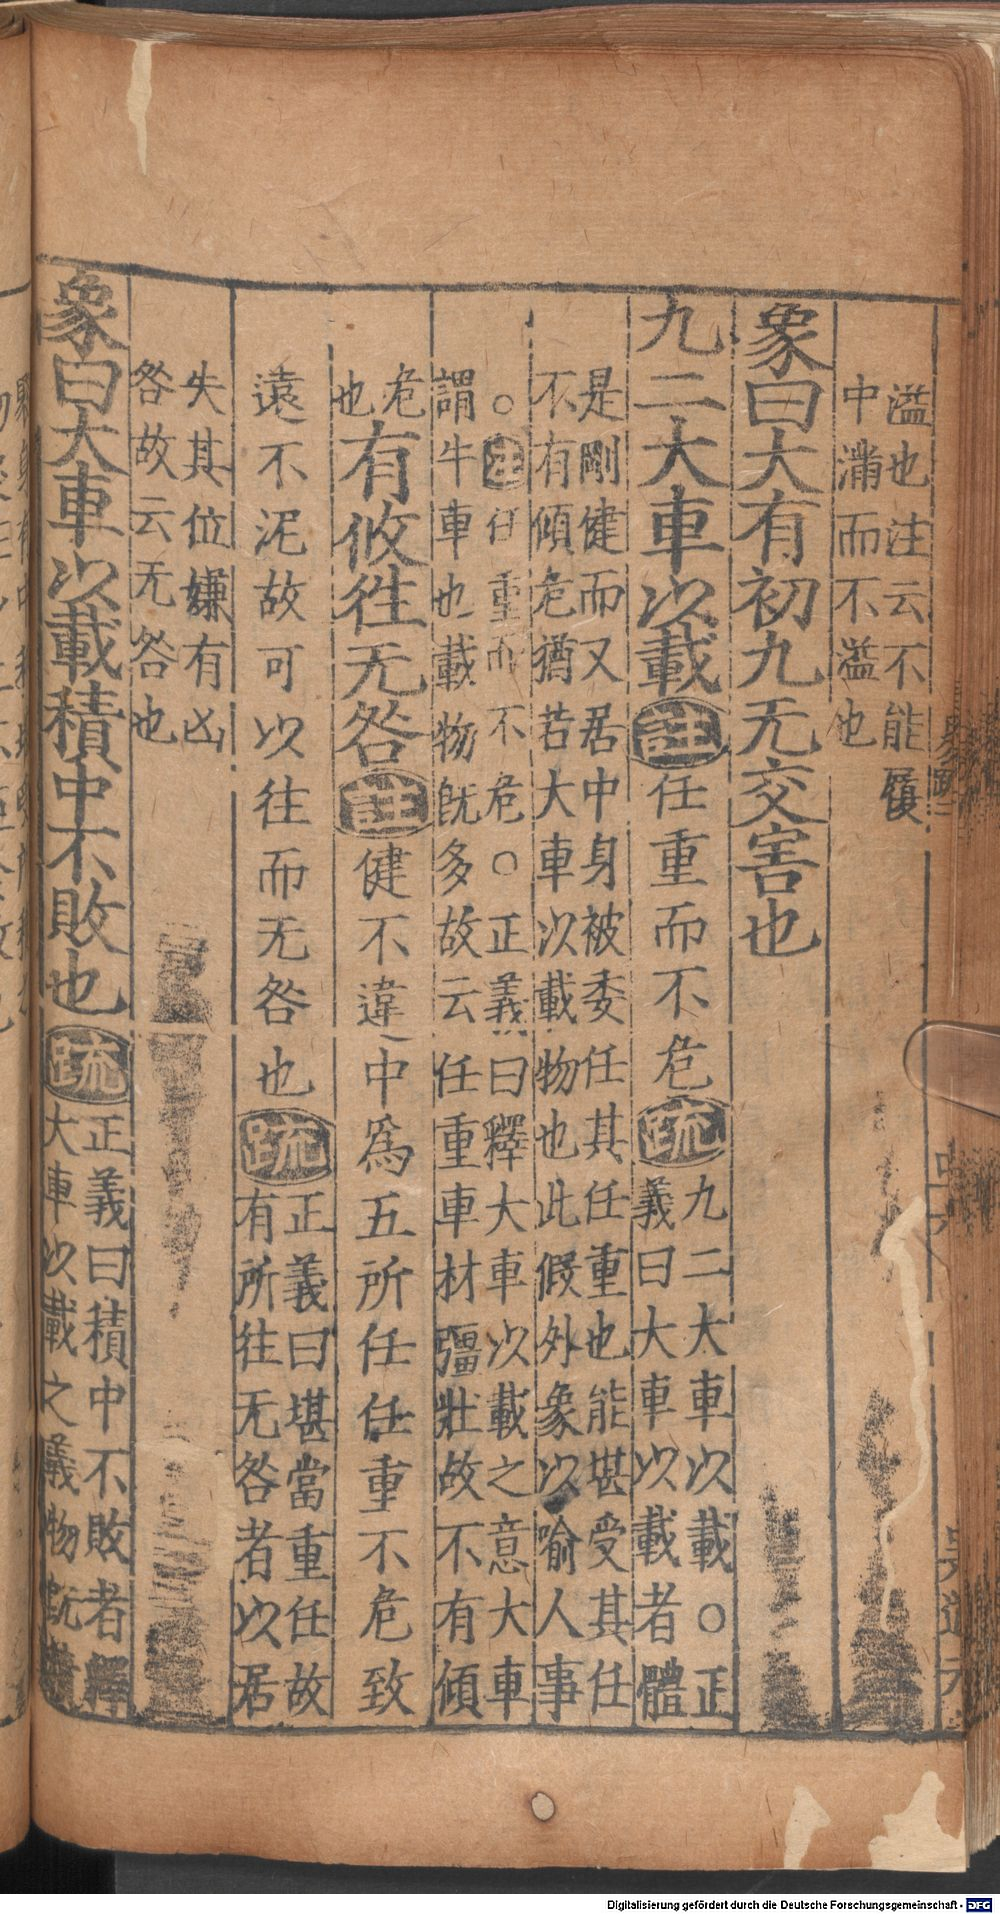 溢也注云不能履
中滿而不溢也
象曰大有初九无交害也
九二大車以載註任重而不危疏九二大車以載○正
義曰大車以載者體
是剛健而又居中身被委任其任重也能堪受其任
不有傾危猶若大車以載物也此假外象以喻人事
○注任重而不危○正義曰釋大車以載之意大車
謂牛車也載物旣多故云任重車材彊壯故不有傾
危
也有攸徃无咎註健不違中爲五所任任重不危致
遠不泥故可以往而无咎也疏正義曰堪當重任故
有所往无咎者以居
失其位嫌有凶
咎故云无咎也
象曰大車以載積中不敗也疏正義曰積中不敗者釋
大車以載之義物旣積
Digitalisierung gefördert durch die Deutsche Forschungsgemeinschaft - DFG